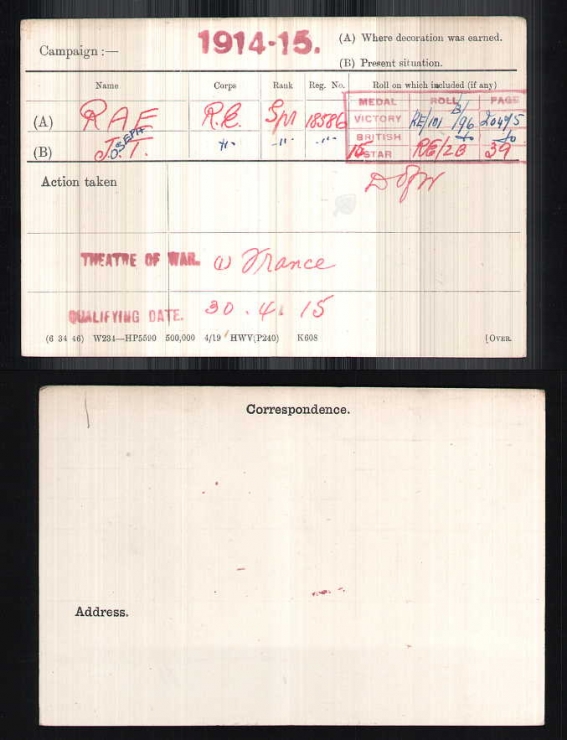 Campaign :— 1914-15. (A) Where decoration was earned.
(B) Present situation.
Name Corps Rank Reg. No. Roll on which included (if any)
MEDAL ROLL PAGE
(A) RAE R.E. Spr 18586 VICTORY RE/101 B/96 20495
BRITISH -do- -do-
(B) J. JOSEPH T. -"- -"- -"- 15 STAR RE/2B 39
Action taken D of W
THEATRE OF WAR. (1) France
QUALIFYING DATE. 30.4.15
(6 34 46) W234—HP5590 500,000 4/19 HWV(P240) K608 [OVER.
Correspondence.
Address.